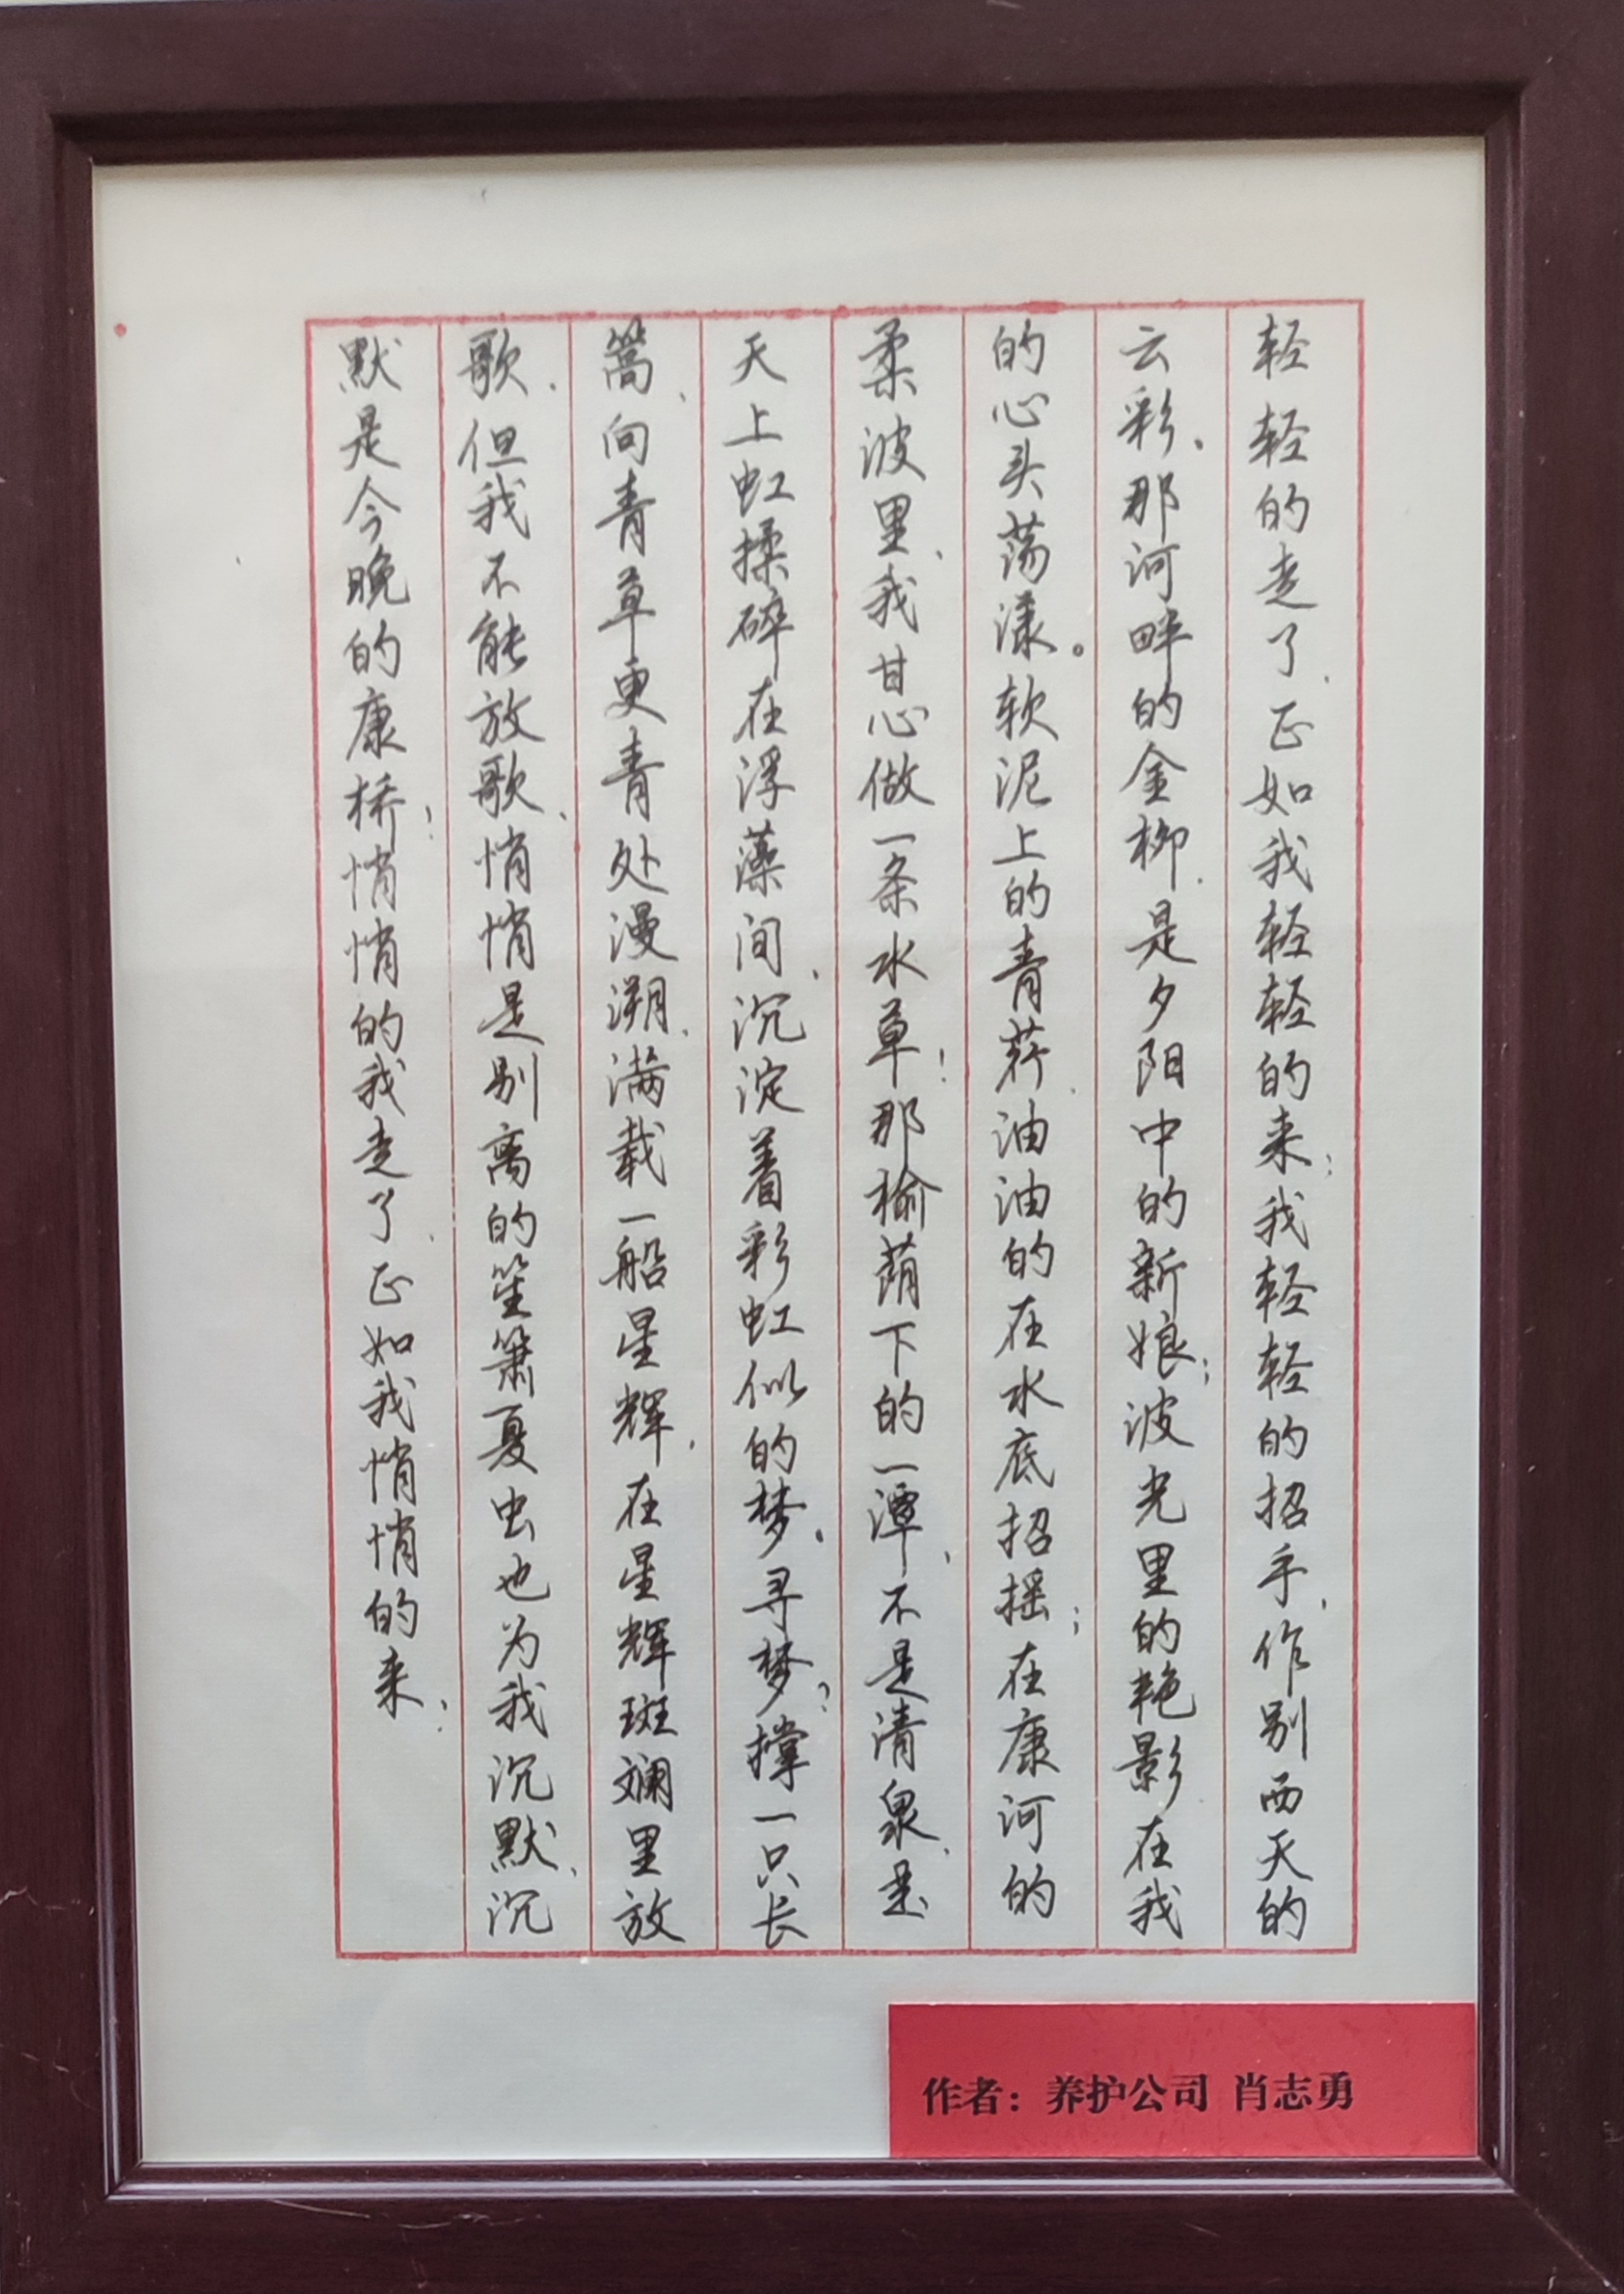 轻轻的走了、正如我轻轻的来；我轻轻的招手、作别西天的
云彩、那河畔的金柳、是夕阳中的新娘；波光里的艳影在我
的心头荡漾。软泥上的青荇、油油的在水底招摇；在康河的
柔波里、我甘心做一条水草！那榆荫下的一潭、不是清泉、是
天上虹揉碎在浮藻间、沉淀着彩虹似的梦、寻梦？撑一只长
篙、向青草更青处漫溯、满载一船星辉、在星辉斑斓里放
歌、但我不能放歌、悄悄是别离的笙箫夏虫也为我沉默、沉
默是今晚的康桥！悄悄的我走了、正如我悄悄的来；
作者：养护公司 肖志勇